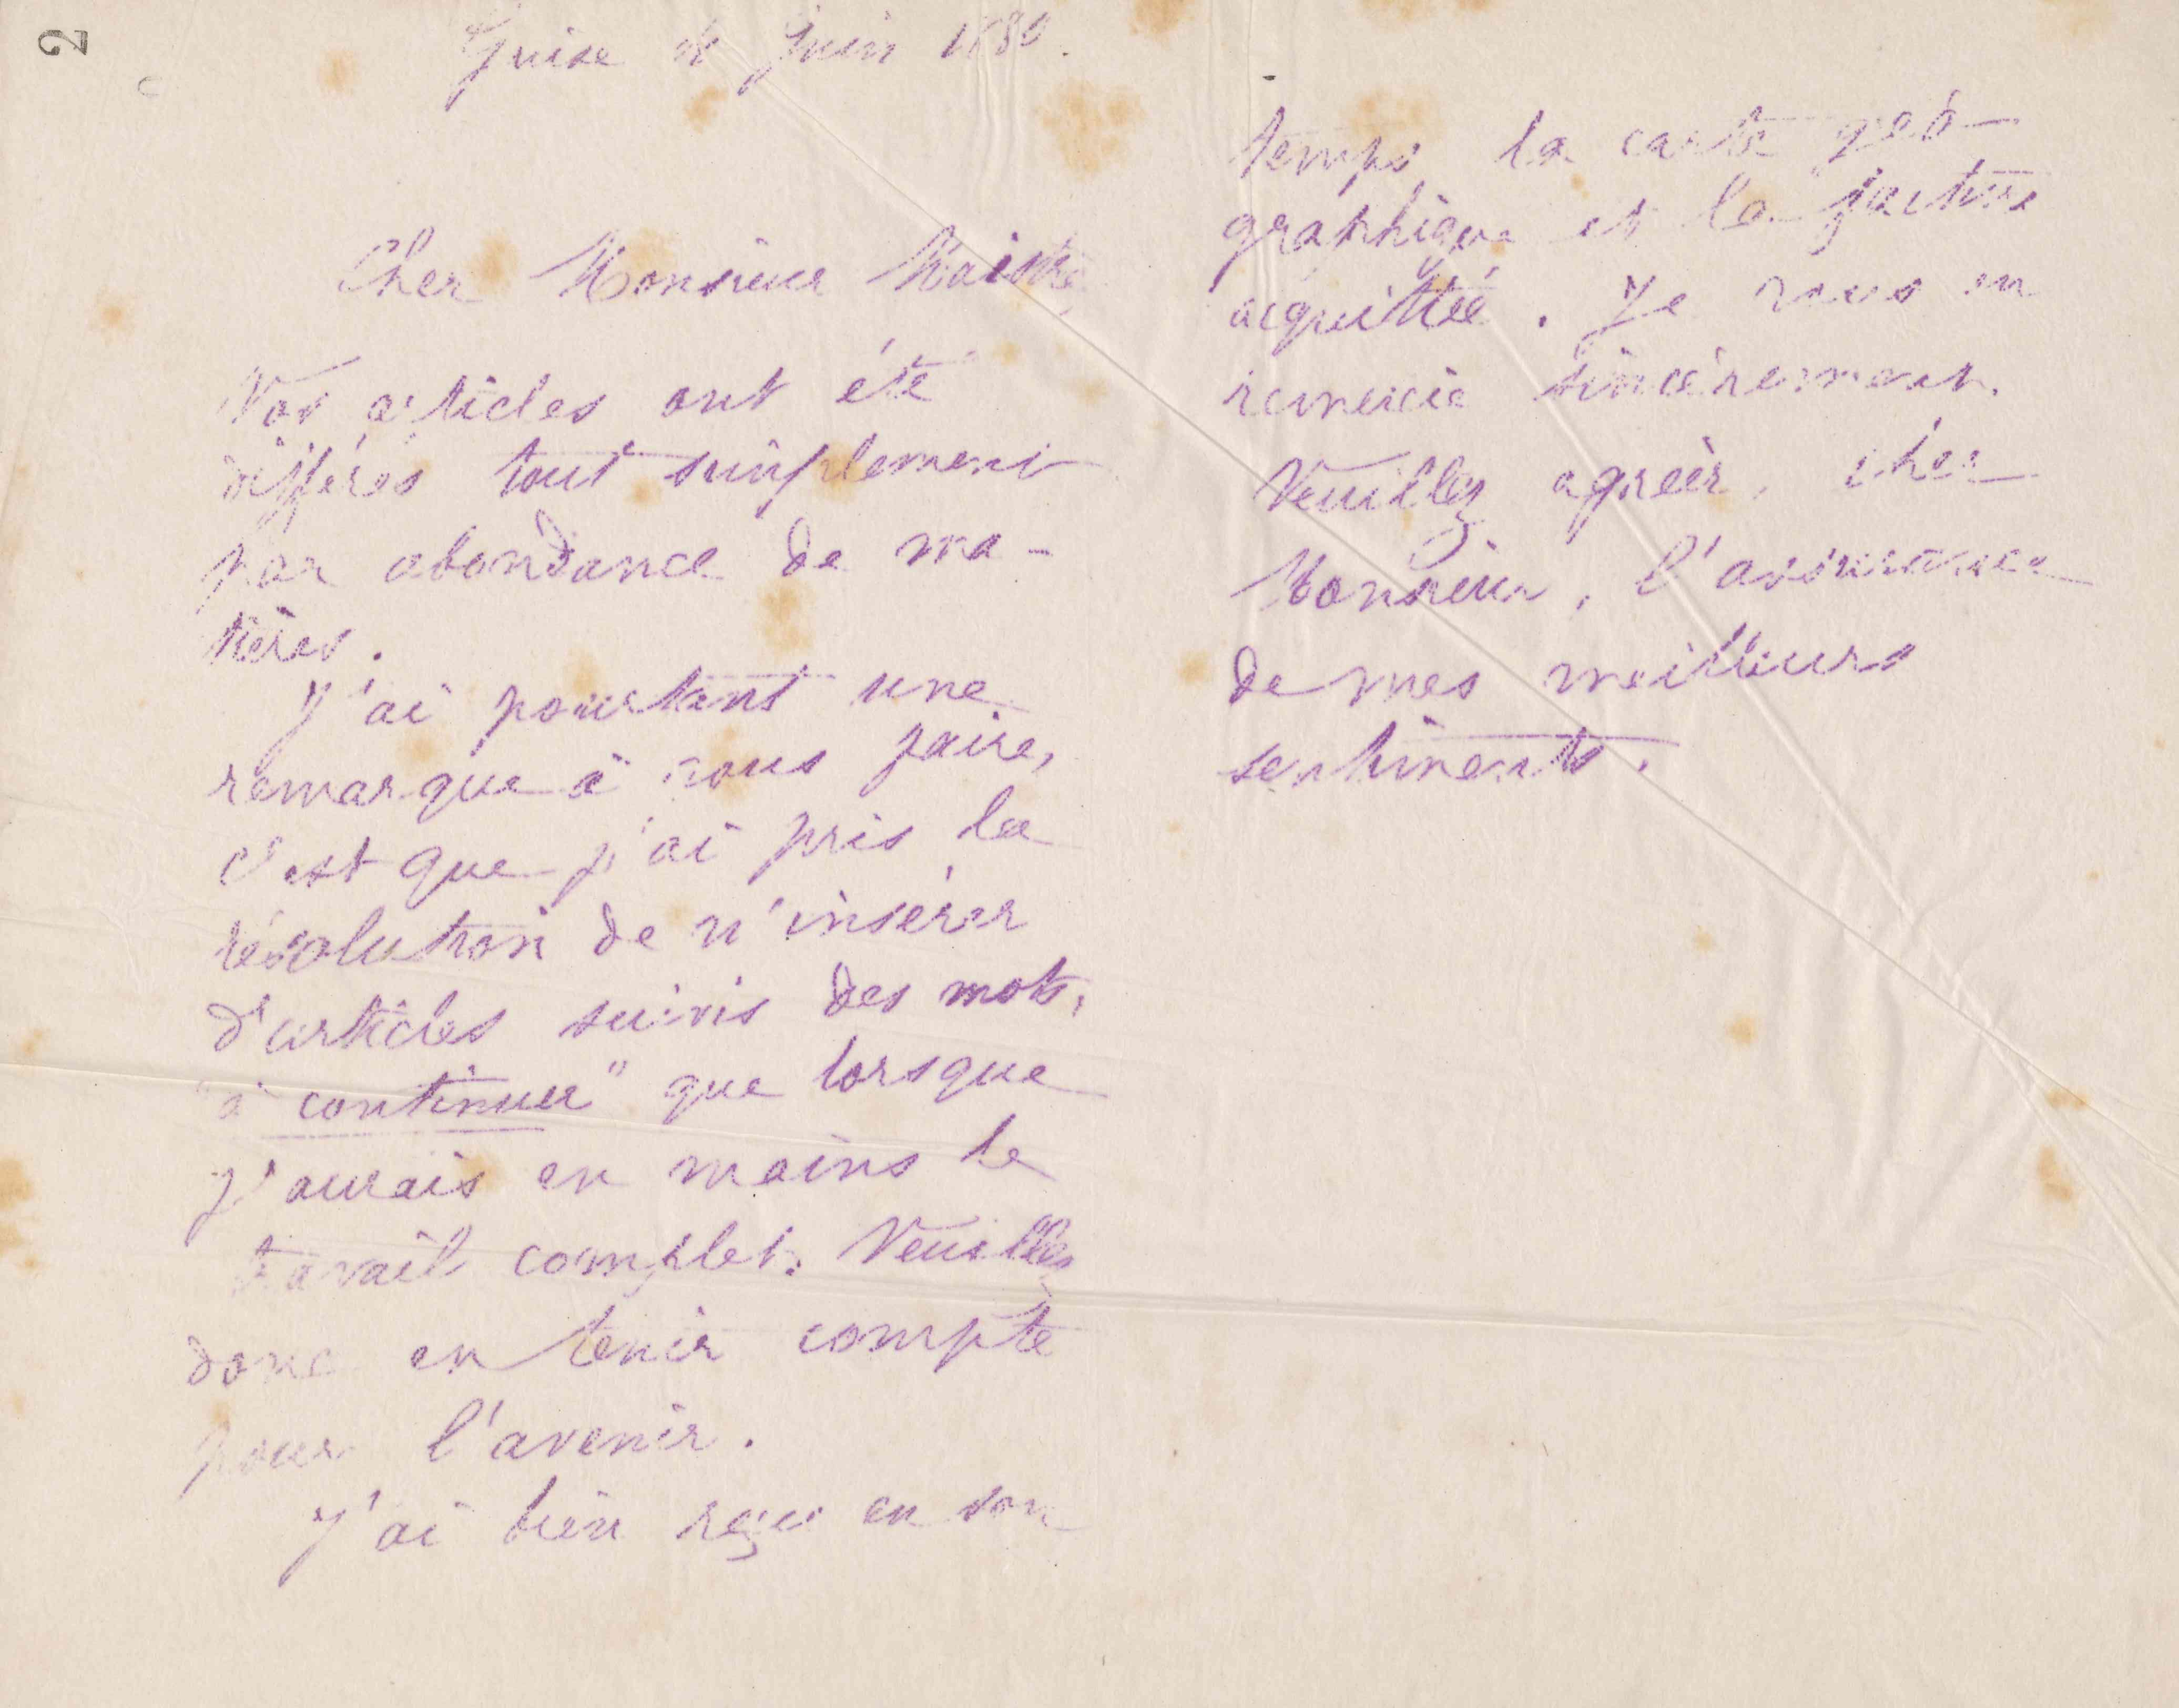 2
Guise Juin 1880.
Cher Monsieur Maistre
Vos articles ont été
différés tout simplement
par abondance de ma-
tières.
J'ai pourtant une
remarque à vous faire,
c'est que j'ai pris la
résolution de n'insérer
d'articles suivis des mots,
"à continuer" que lorsque
j'aurais en mains le
travail complet. Veuillez
donc en tenir compte
pour l'avenir.
J'ai bien reçu en son
temps la carte géo-
graphique et la facture
acquittée. Je vous en
remercie sincèrement.
Veuillez agréer, cher
Monsieur, l'assurance
de mes meilleurs
sentiments.